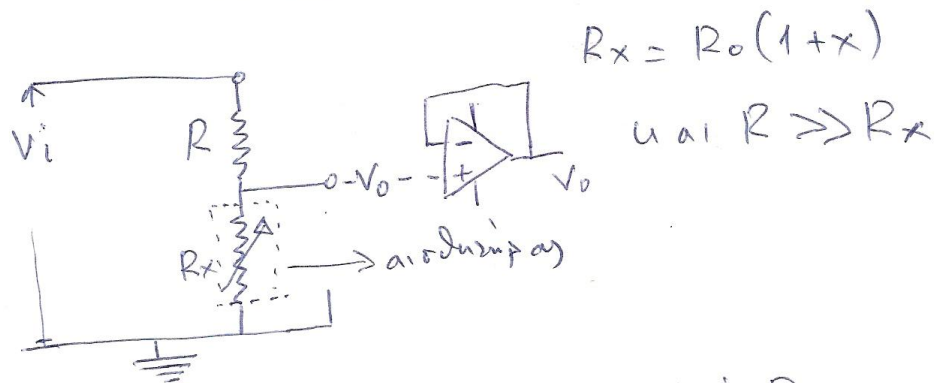 Rx = R₀(1+x)
και R >> Rx
Vi
R
V₀
-
+
V₀
Rx
αισθητήρας